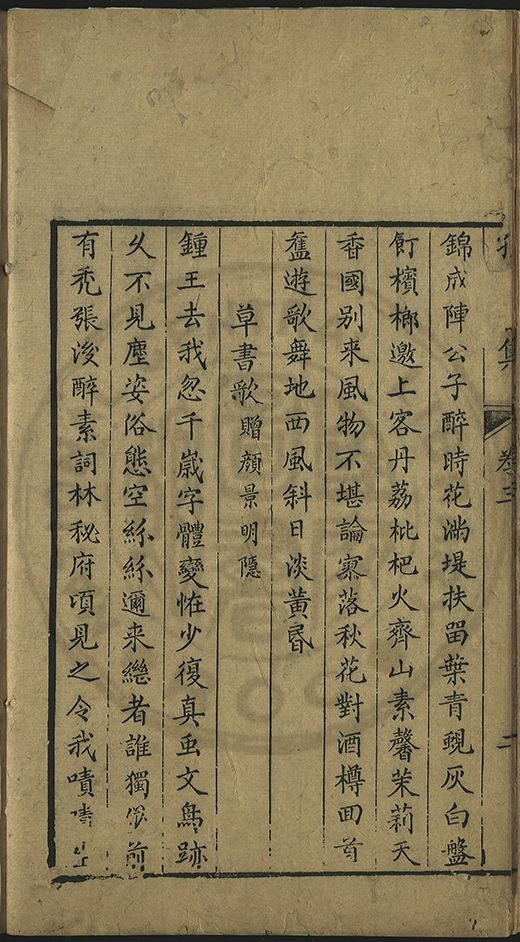 集 卷三 二
錦成陣公子醉時花滿堤扶畱葉青蜆灰白盤
飣檳榔邀上客丹荔枇杷火齊山素馨茉莉天
香國别来風物不堪論寥落秋花對酒樽囬首
舊遊歌舞地西風斜日淡黄昏
草書歌贈顔景明隱
鍾王去我忽千嵗字體變恠少復真䖝文鳥跡
久不見塵姿俗態空紛紛邇来繼者誰獨步前
有禿張後醉素詞林秘府頃見之令我嘖嘖